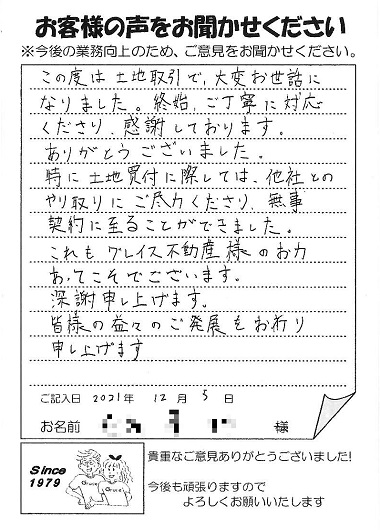 お客様の声をお聞かせください
※今後の業務向上のため、ご意見をお聞かせください。
この度は土地取引で、大変お世話に
なりました。終始、ご丁寧に対応
くださり、感謝しております。
ありがとうございました。
特に土地買付に際しては、他社との
やり取りにご尽力くださり、無事
契約に至ることができました。
これもグレイス不動産様のお力
あってこそでございます。
深謝申し上げます。
皆様の益々のご発展をお祈り
申し上げます
ご記入日 2021年 12月 5日
お名前 様
Since
1979
貴重なご意見ありがとうございました!
今後も頑張りますので
よろしくお願いいたします